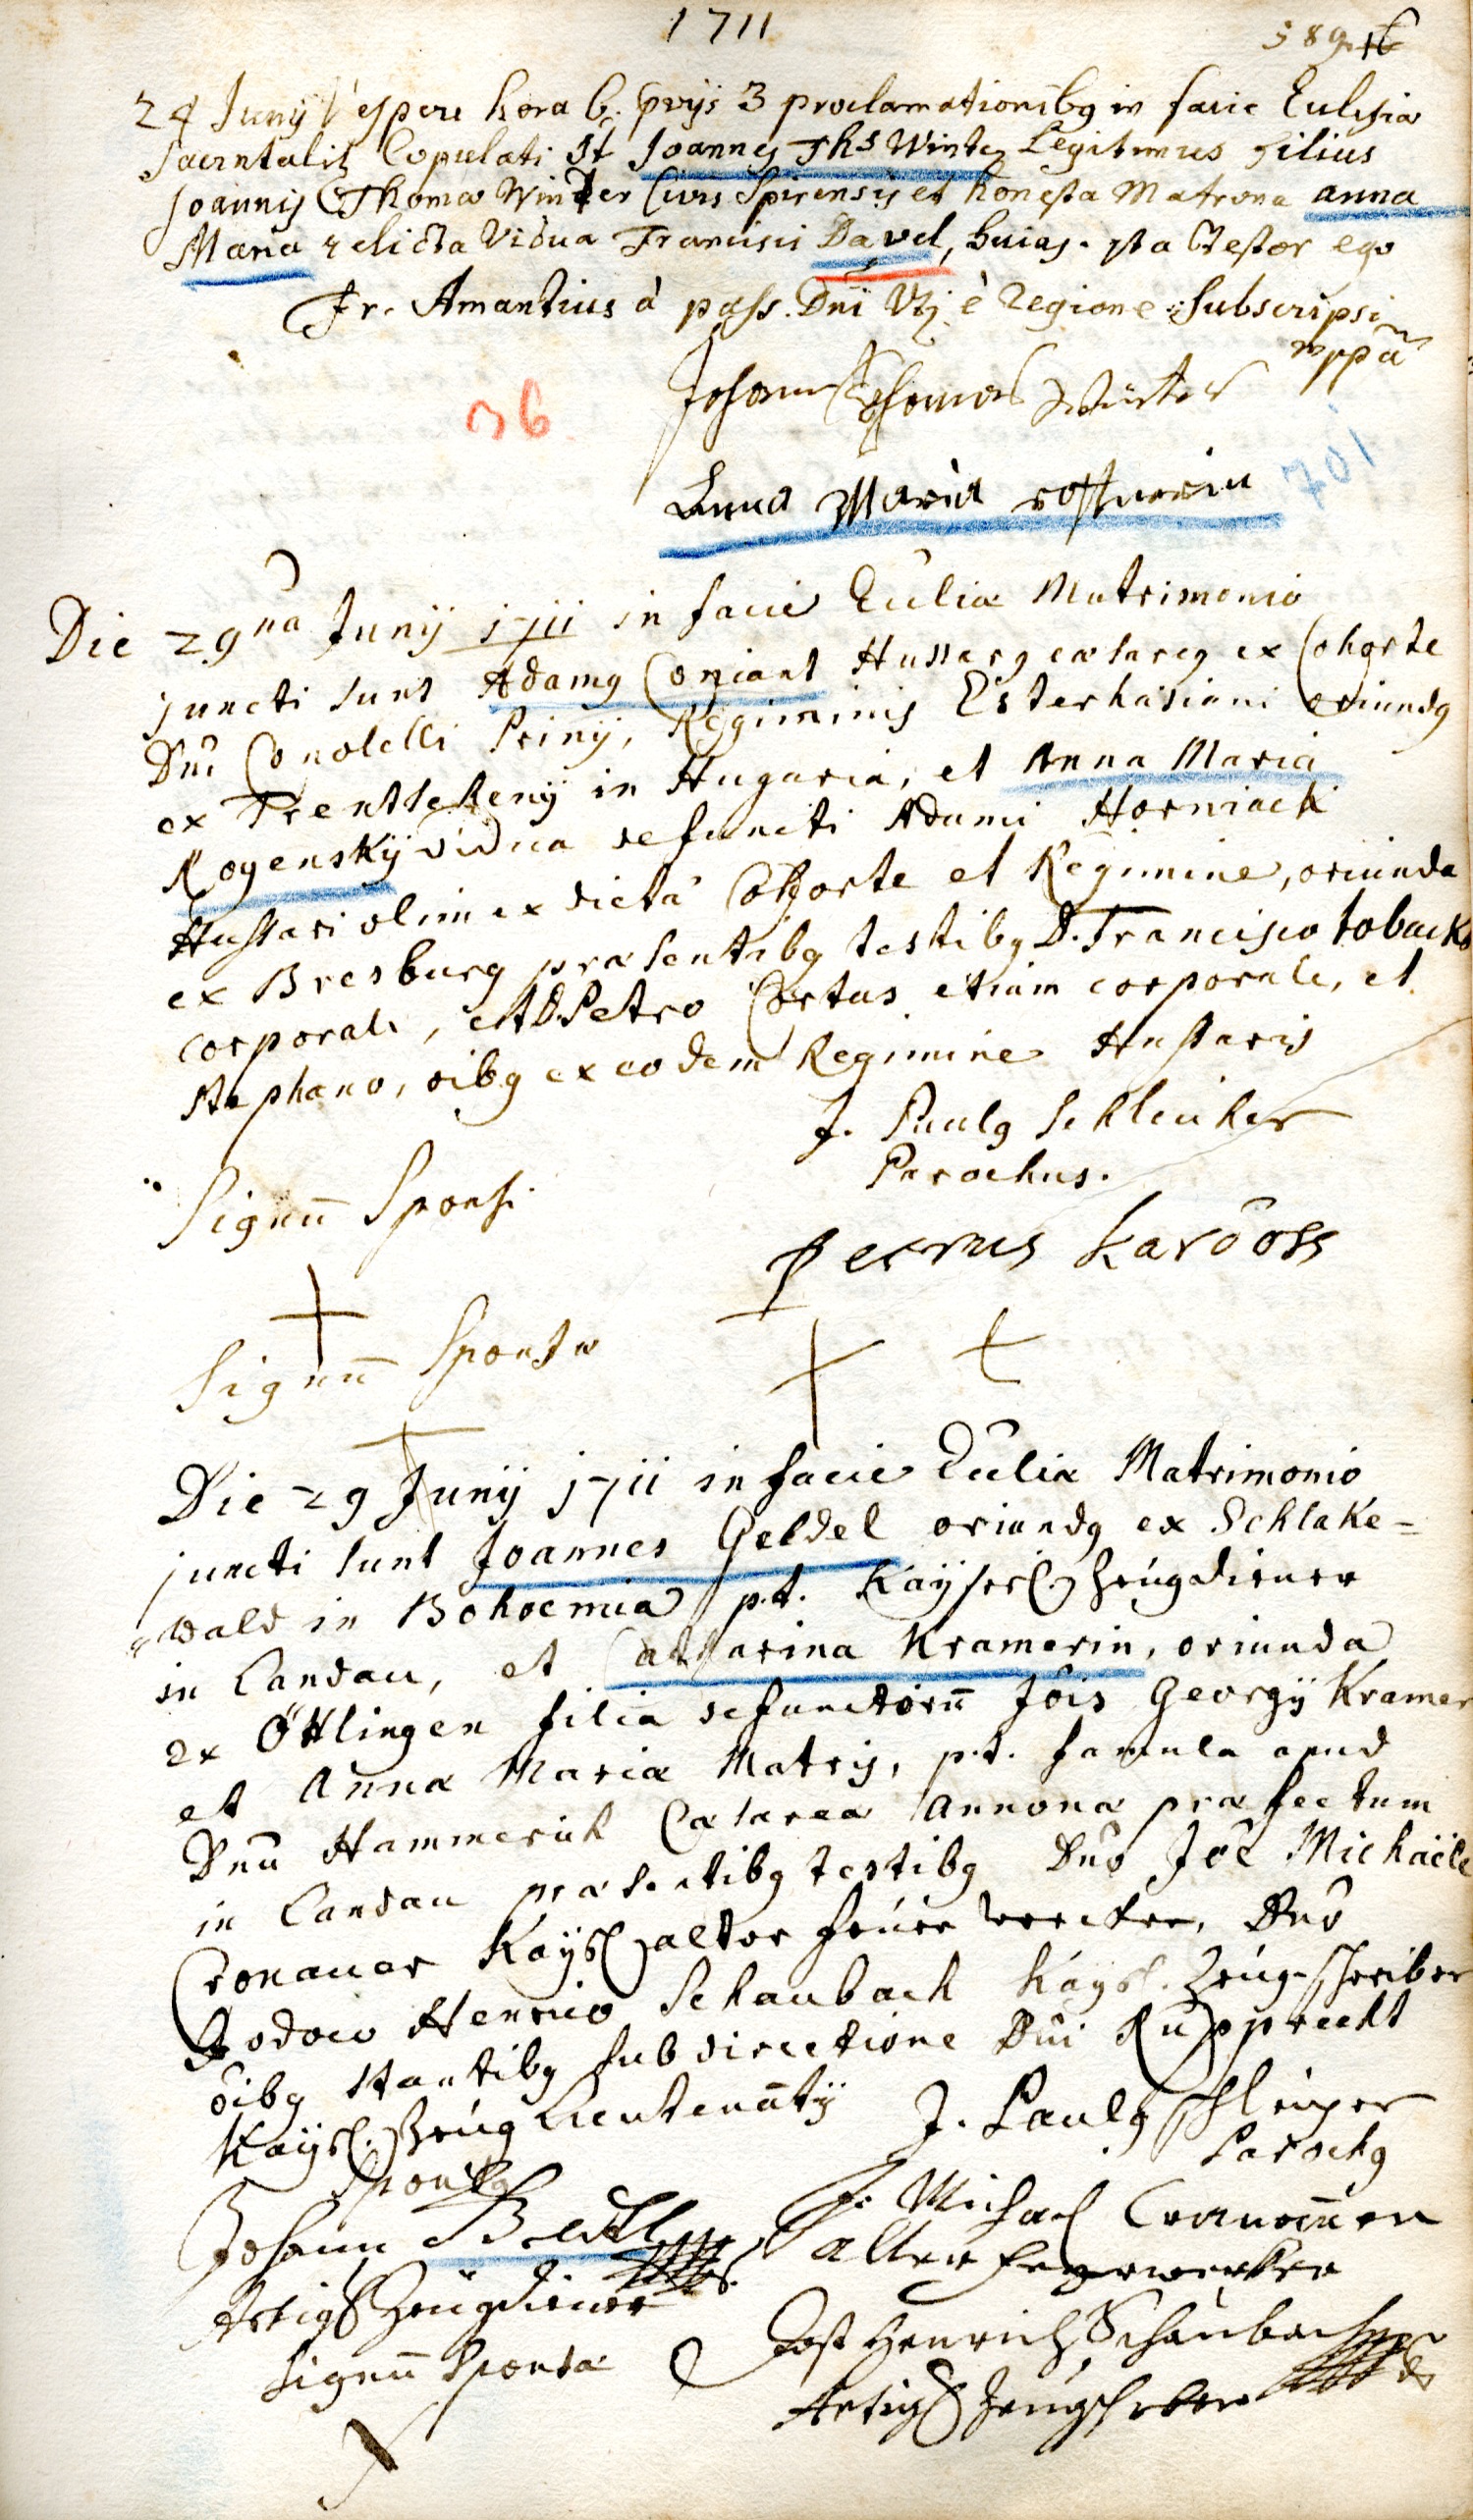 1711
589. 16
24 Junij Vespere hora 6. prvijs 3 proclamationibq in facie Eclesiæ
Sacrntalit Copulati st Joannes Ths Winter Legitimus Filius
Joannis Thomæ Winter Civis Spirensis et honesta Matrona anna
Maria relicta Vidua Francisci Davel, huias. ita testor ego
Fr. Amantius à pass. Dni Vtj è Regione. Subscripsi
mppa
Johann Thomas Winter
36
701
Anna Maria
Die 29na Junij 1711 in facie Eccliæ Matrimonio
juncti sunt Adamq Coniant Hussarq cæsareq ex Cohorte
Dni Conolelli Priny, Regiminis Esterhasiani oriundq
ex Trentscheny in Hugaria, et Anna Maria
Rogensky vidua defuncti Adami Horniack
Hussari olim ex dicta Cohorte et Regimine, oriunda
ex Bresburg præsentibq testibq D. Francisco toback
corporali, et D. Petro Cortus etiam corporale, et
Stephano, oibq ex eodem Regimine Hussaris
J. Paulq Schleuker
Parochus.
Signū Sponsi
Petrus Karooss
Signū Sponsæ
Die 29 Junij 1711 in facie Eccliæ Matrimonio
juncti sunt Joannes Geldel oriundq ex Schlake=
wald in Bohoemia p.t. Kayserl. Zeugdiener
in Landau, et Catharina Kramerin, oriunda
ex Öttlingen filia defunctorū Jois Georgij Kramer
et Anna Mariæ Matris, p.t. famula apud
Dnū Hammerich Cæsareæ Annonæ præfectum
in Landau præsentibq testibq Dno Joe Michaële
Cronauer Kaysl alter feuer wercker, Dno
Jodoco Henrico Schaubach Kaysl. Zeug-schreiber
oibq stantibq sub directione Dni Rupprecht
Kaysl. Zeug Lieutenātij
J. Paulq Schleuker
Parochq
Sponsq
Johann
J. Michael Cronauer
alter feyrwercker
Artigl Zeugdiener
Jost Henrich Schaubach
Signū Sponsæ
Artigl Zeugschreiber